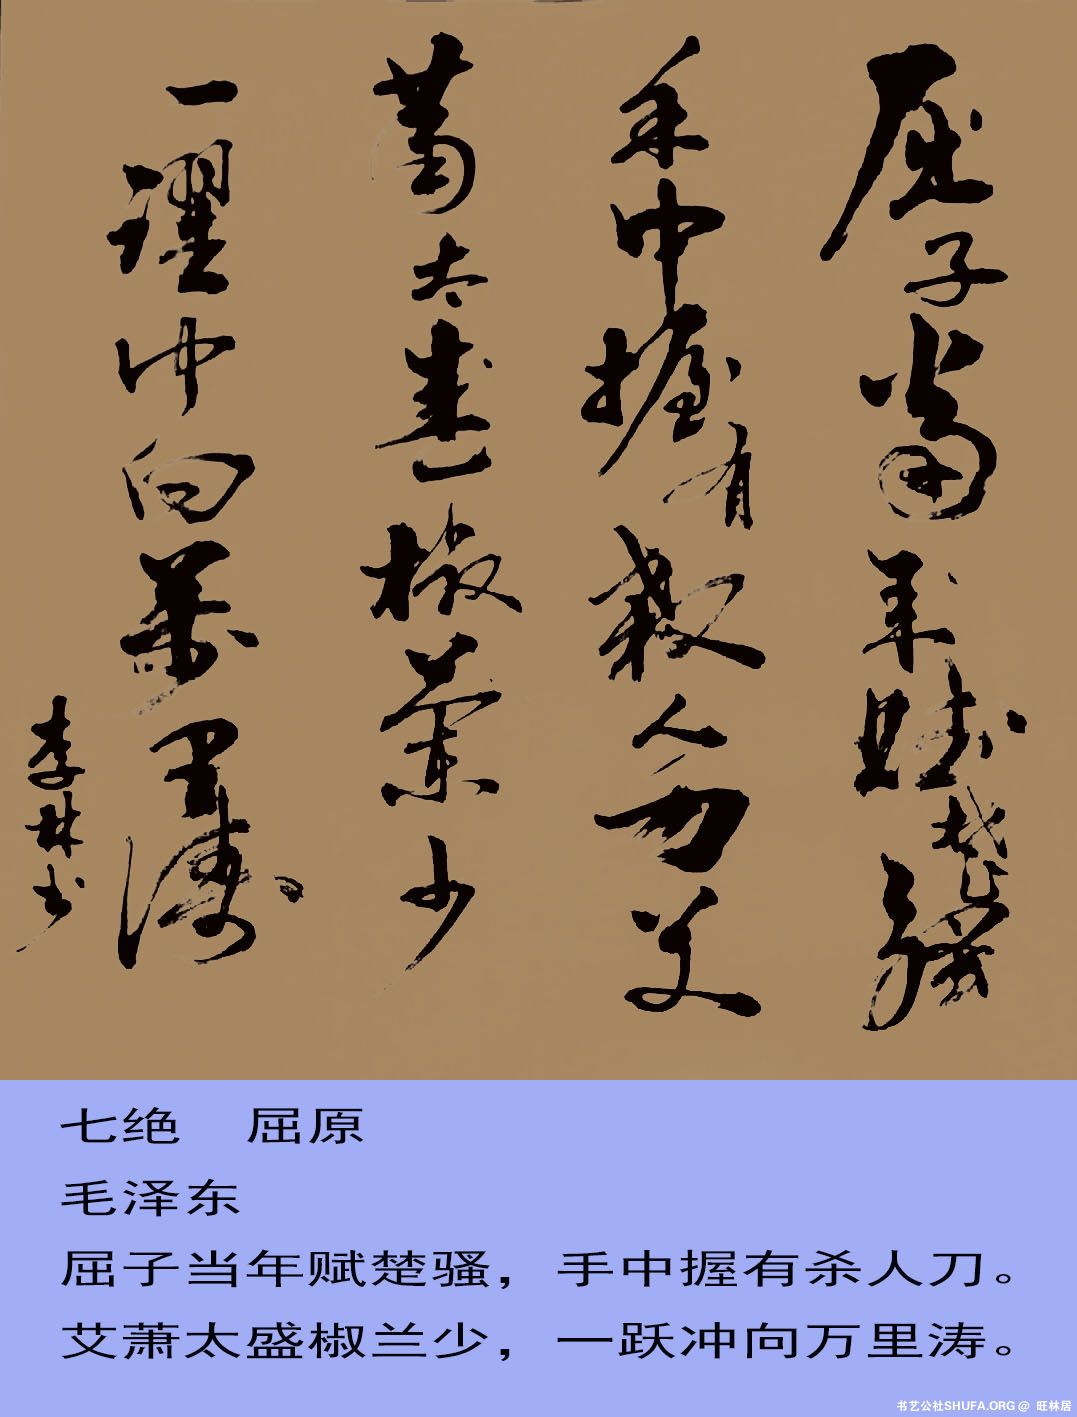 屈子當年賦楚騷
手中握有殺人刀艾
蕭太盛椒蘭少
一躍冲向萬里濤
李林书
七绝　屈原
毛泽东
屈子当年赋楚骚，手中握有杀人刀。
艾萧太盛椒兰少，一跃冲向万里涛。
书艺公社SHUFA.ORG @ 旺林居